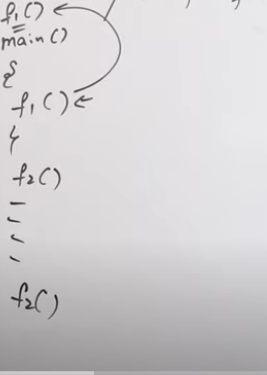 f₁()
main()
{
f₁()
}
f₂()
f₂()